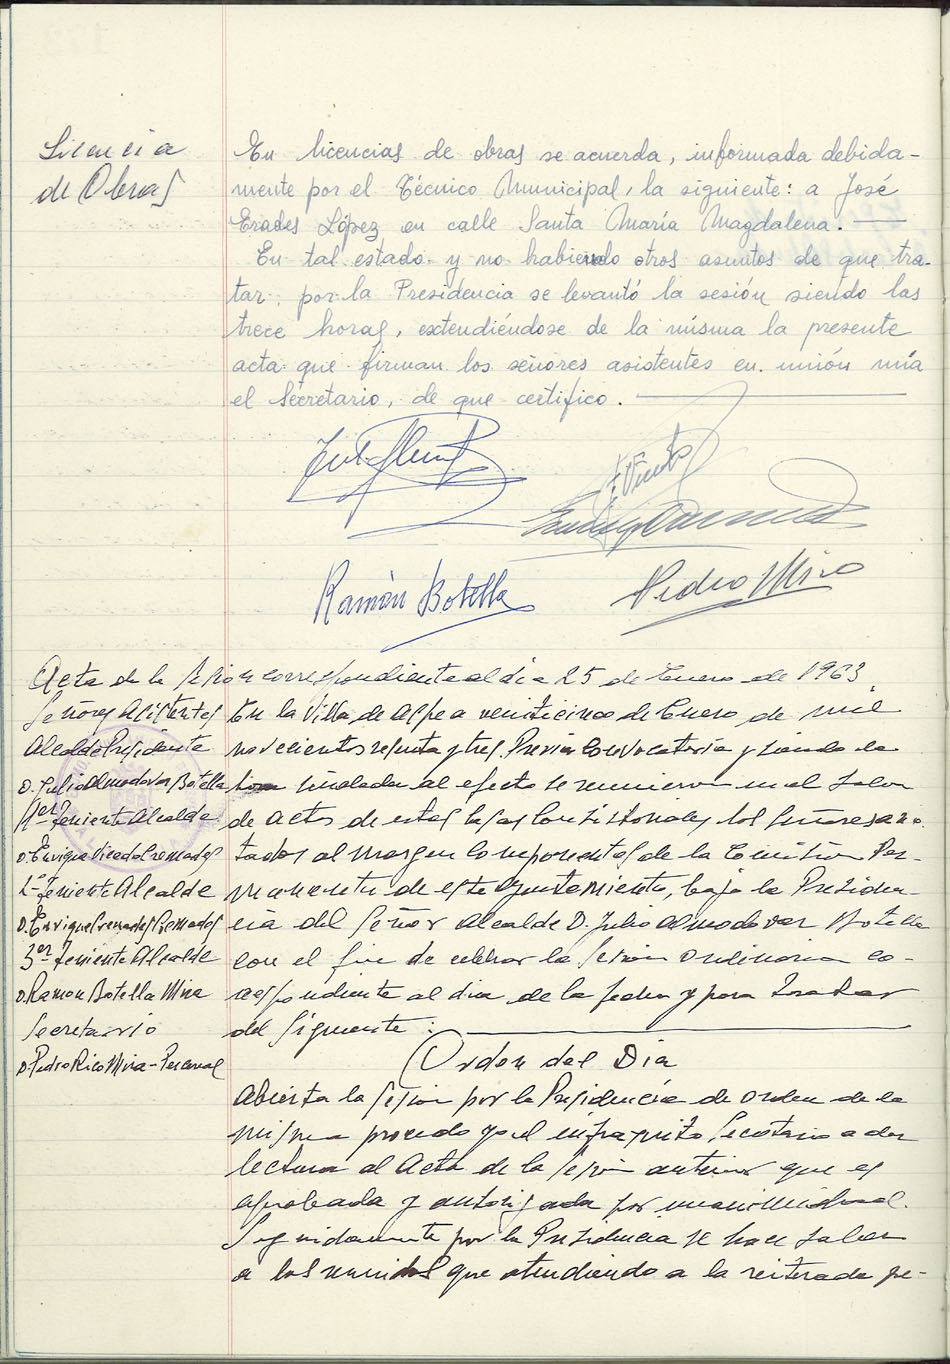 Licencia
de Obras
En licencias de obras se acuerda, informada debida-
mente por el Técnico Municipal, la siguiente: a José
Erades López en calle Santa María Magdalena.
En tal estado y no habiendo otros asuntos de que tra-
tar, por la Presidencia se levantó la sesión siendo las
trece horas, extendiéndose de la misma la presente
acta que firman los señores asistentes en unión mía
el Secretario, de que certifico.
Ramón Botella
Pedro Mira
Acta de la sesión correspondiente al dia 25 de Enero de 1963
Señores Asistentes
Alcalde Presidente
D. Julio Almodovar Botella
1er Teniente Alcalde
D. Enrique
2º Teniente Alcalde
D. Enrique Cremades Cremades
3er Teniente Alcalde
D. Ramon Botella Mira
Secretario
D. Pedro Rico Mira-Perceval
En la Villa de Aspe a veinticinco de Enero de mil
novecientos sesenta y tres. Previa Convocatoria y siendo la
hora señalada al efecto se reunieron en el Salon
de actos de estas Casas Consistoriales los Señores ano-
tados al margen componentes de la Comision Per-
manente de este Ayuntamiento, bajo la Presiden-
cia del Señor Alcalde D. Julio Almodovar Botella
con el fin de celebrar la sesion Ordinaria co-
rrespondiente al dia de la fecha y para tratar
del siguiente :
Orden del Dia
Abierta la sesion por la Presidencia de orden de la
misma procedo yo el infrascrito Secretario a dar
lectura al Acta de la sesion anterior que es
aprobada y autorizada por unanimidad.
Seguidamente por la Presidencia se hace saber
a los reunidos que atendiendo a la reiterada pe-